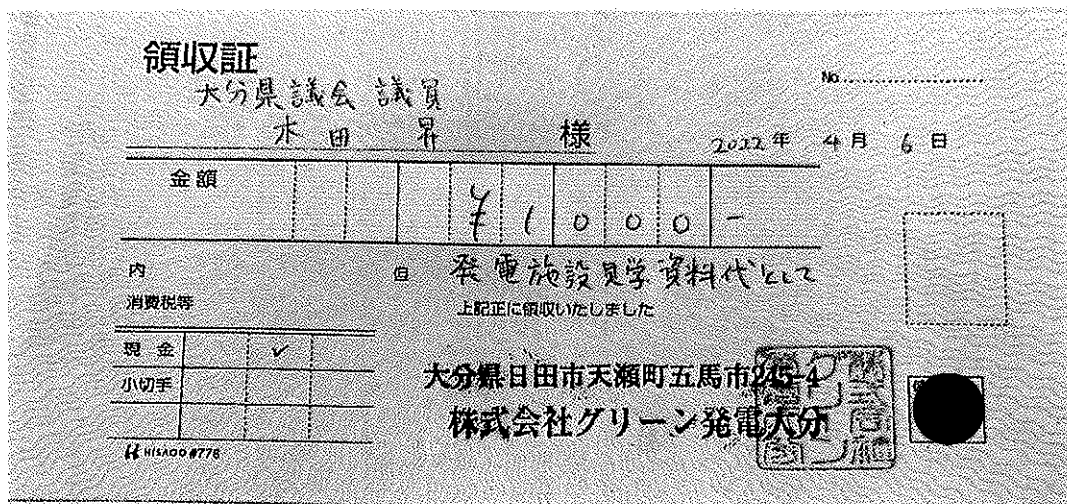 領収証
No.
大分県議会議員
木田 昇 様
2022年 4月 6日
金額 ¥1000-
内
但 発電施設見学資料代として
消費税等
上記正に領収いたしました
現金 ✓
小切手
大分県日田市天瀬町五馬市245-4
株式会社グリーン発電大分
HISAGO #778